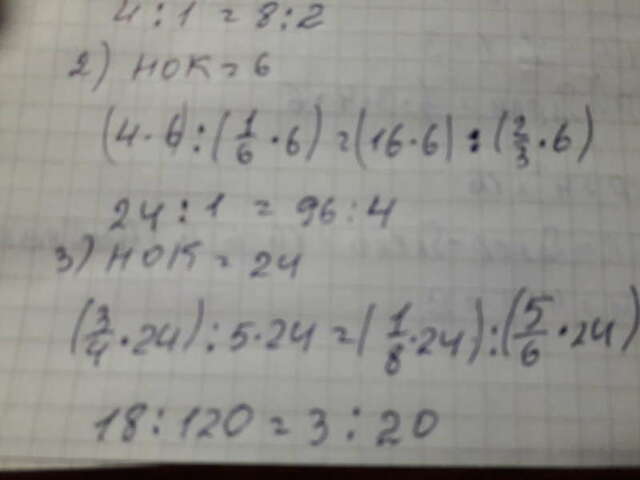 4 : 1 = 8 : 2
2) НОК = 6
(4 · 6) : (1/6 · 6) = (16 · 6) : (2/3 · 6)
24 : 1 = 96 : 4
3) НОК = 24
(3/4 · 24) : 5 · 24 = (1/8 · 24) : (5/6 · 24)
18 : 120 = 3 : 20